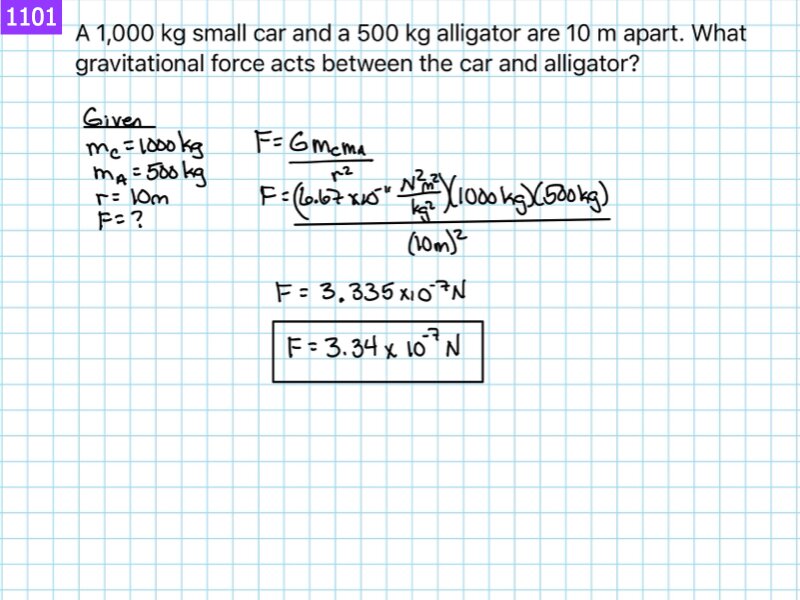 1101
A 1,000 kg small car and a 500 kg alligator are 10 m apart. What
gravitational force acts between the car and alligator?
Given
m_c = 1000 kg
m_A = 500 kg
r = 10m
F = ?
F = G m_c m_A
r²
F = (6.67 x10⁻¹¹ N²m²/kg²)(1000 kg)(500 kg)
(10m)²
F = 3.335 x10⁻⁷ N
F = 3.34 x 10⁻⁷ N